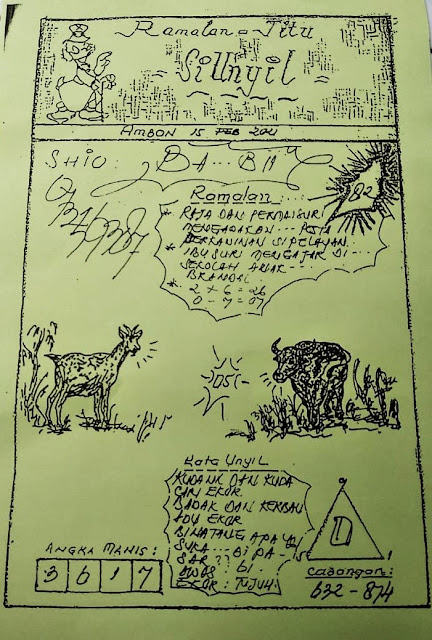 Ramalan = Jitu
Si Unyil
AMBON 15 FEB 2011
SHIO: BA... BII
82
Ramalan
* RAJA DAN PERMAISURI
MENGADAKAN... PESTA
* PERKAWINAN SI PELAYAN
IBU SURI MENGAJAR DI...
SEKOLAH ANAK
BRANDAL
* 2 + 6 = 26
0 - 7 = 07
Kata Unyil
KUDA NIL DAN KUDA
CARI EKOR
BADAK DAN KERBAU
ADU EKOR
BINATANG APA YG
SUKA... DI PA -
SAR??
EKOR: TUJUH
ANGKA MANIS:
3 6 1 7
Cabangan:
632 - 874